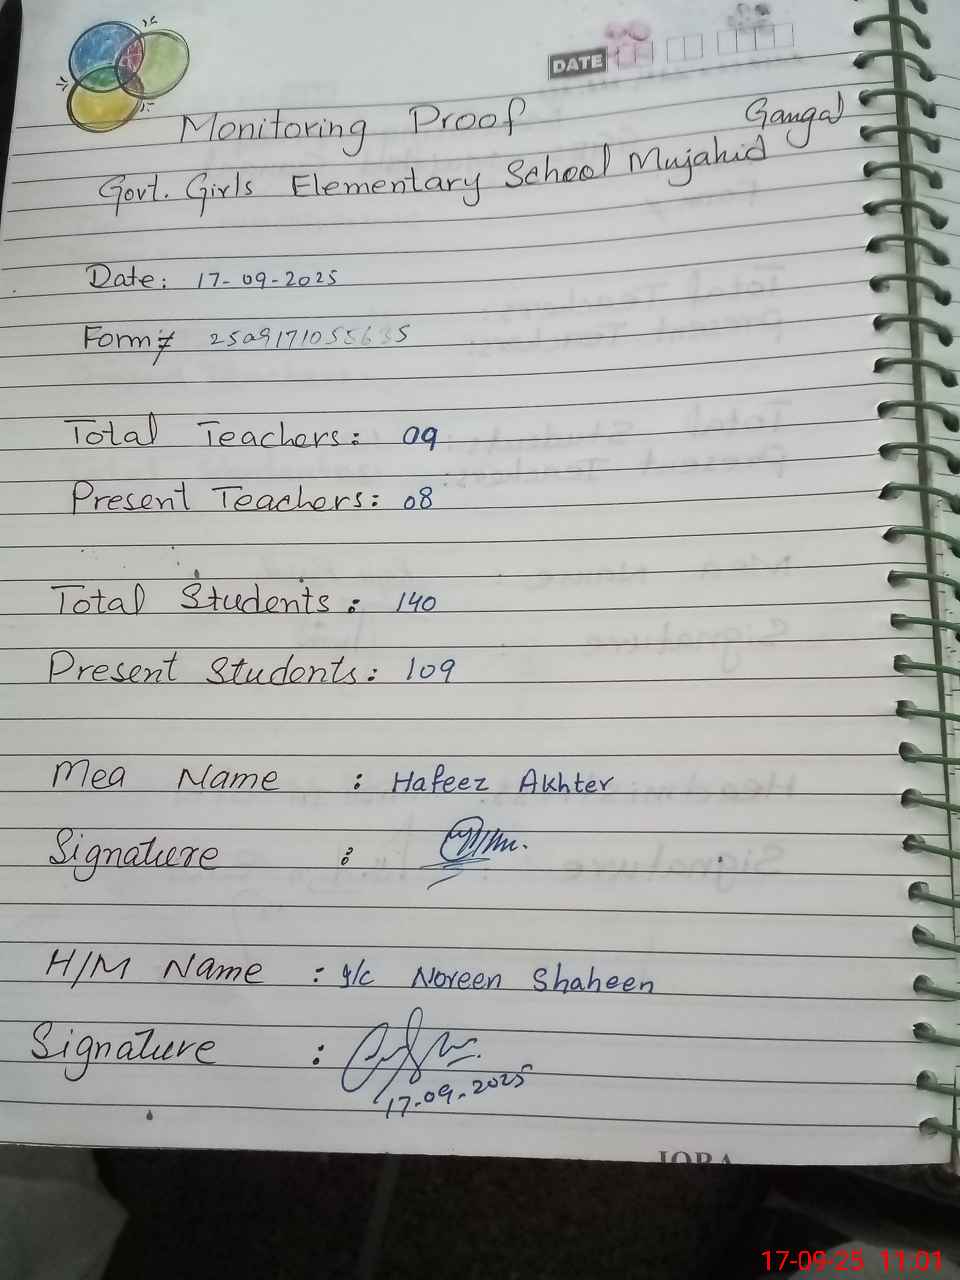 DATE
Monitoring Proof
Govt. Girls Elementary School Mujahid Gangal
Date: 17-09-2025
Form# 2509171055635
Total Teachers: 09
Present Teachers: 08
Total Students: 140
Present Students: 109
Mea Name : Hafeez Akhter
Signature :
H/M Name : I/C Noreen Shaheen
Signature :
17-09-2025
IQRA
17-09-25 11:01